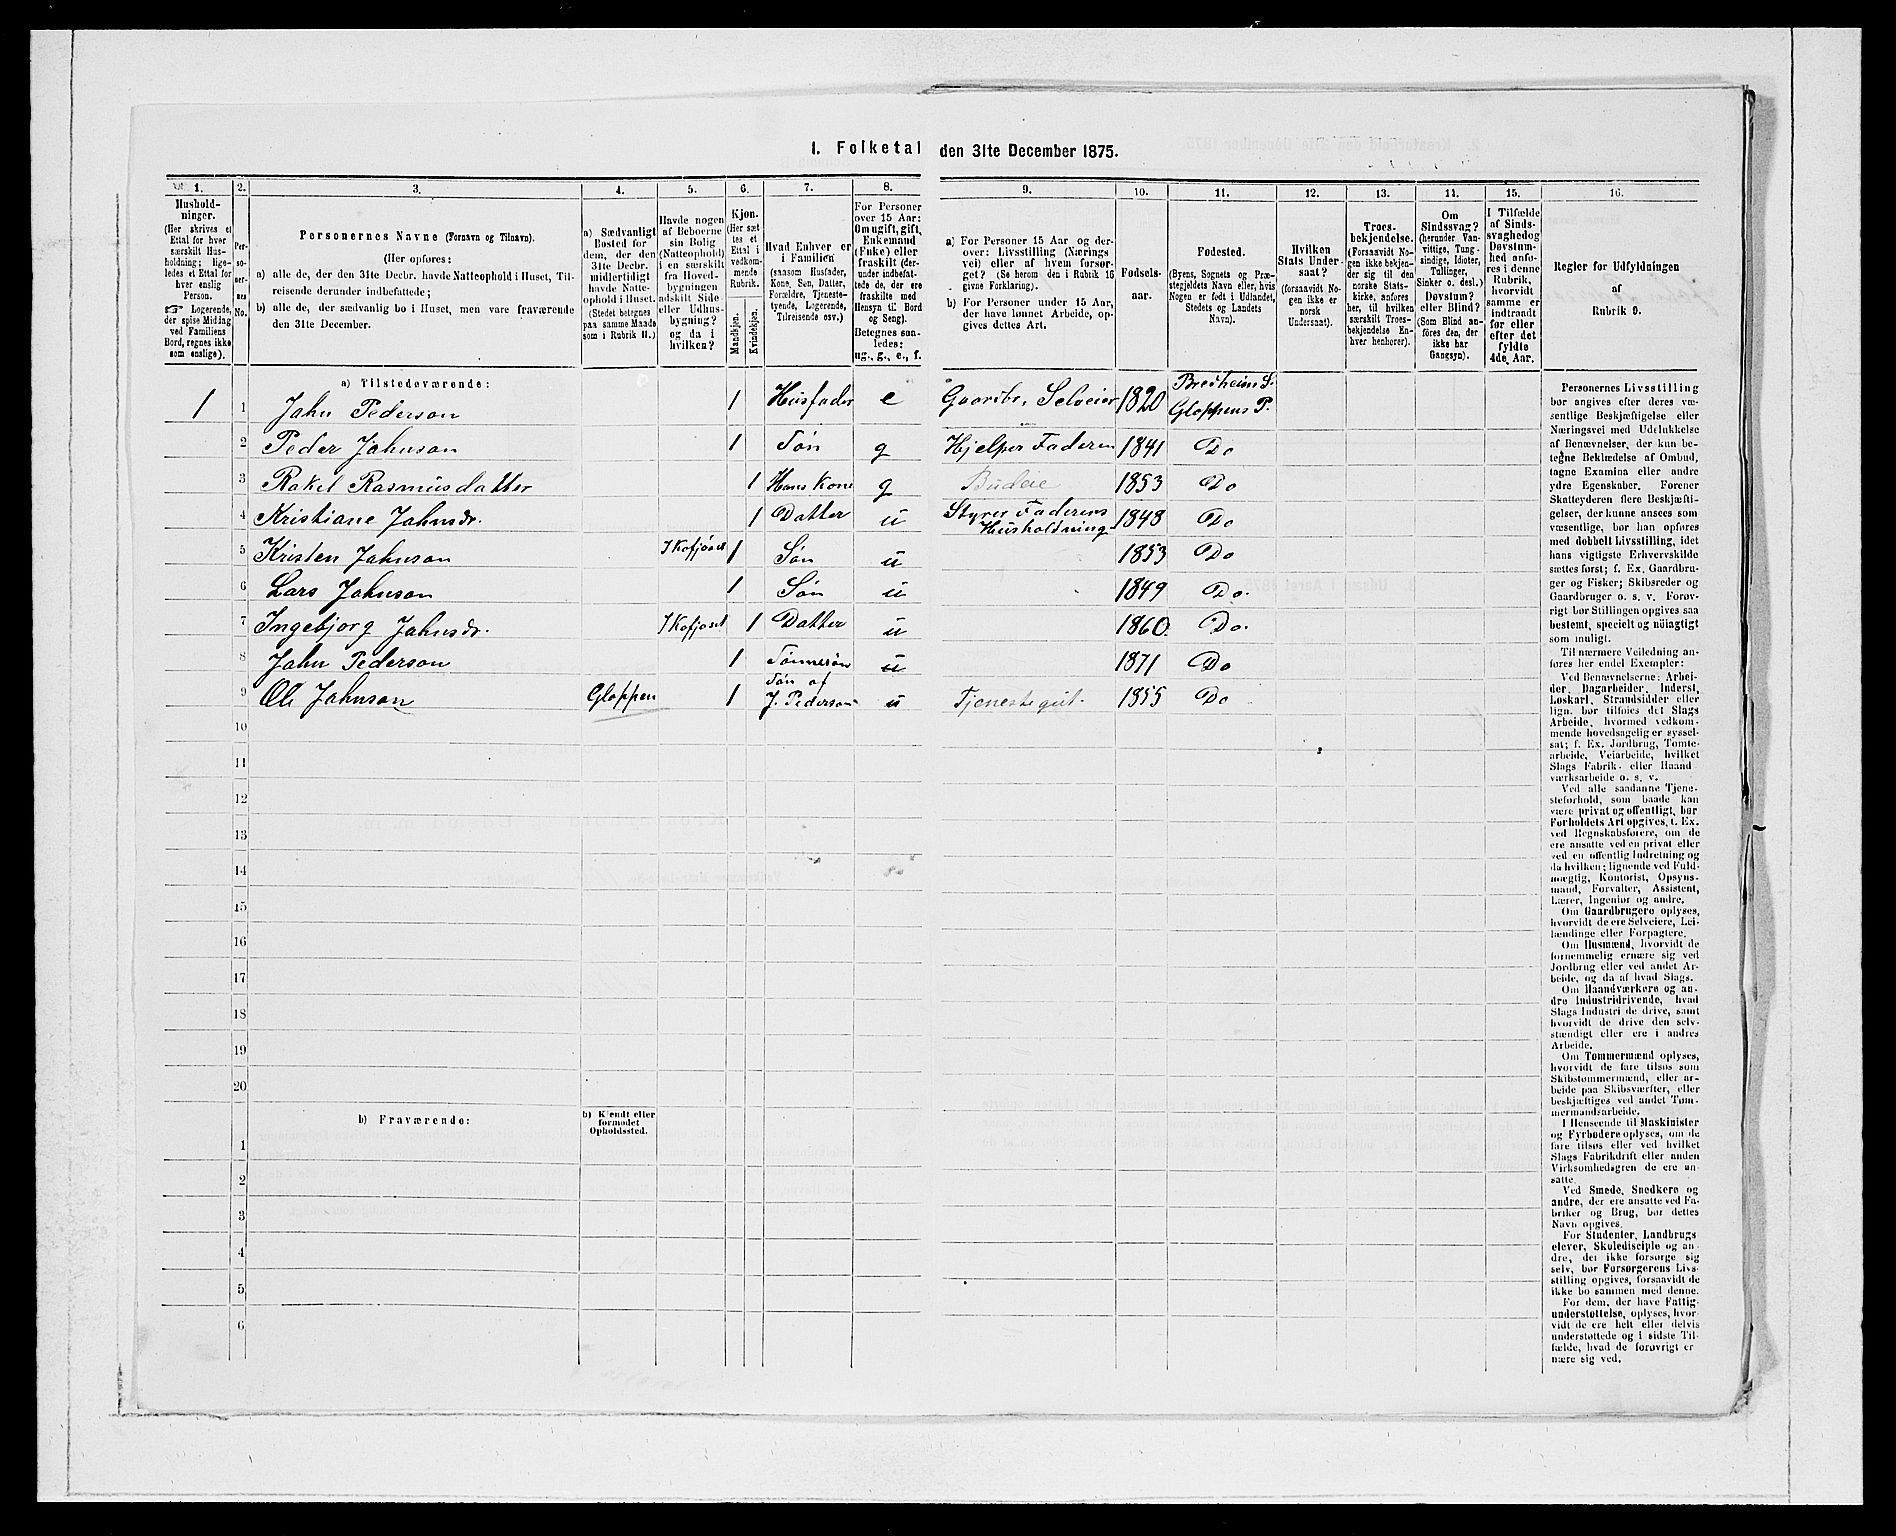 I. Folketal den 31te December 1875.
1. 2. 3. 4. 5. 6. 7. 8. 9. 10. 11. 12. 13. 14. 15. 16.
Hushold-
ninger.
(Her skrives et
Ettal for hver
særskilt Hus-
holdning; lige-
ledes et Ettal for
hver enslig
Person.
☞ Logerende,
der spise Middag
ved Familiens
Bord, regnes ikke
som enslige).
Per-
so-
ner-
nes
No.
Personernes Navne (Fornavn og Tilnavn).
(Her opføres:
a) alle de, der den 31te Decbr. havde Natteophold i Huset, Til-
reisende derunder indbefattede;
b) alle de, der sædvanlig bo i Huset, men vare fraværende
den 31te December.
a) Sædvanligt
Bosted for
dem, der den
31te Decbr.
midlertidigt
havde Natte-
ophold i Huset.
(Stedet betegnes
paa samme Maade
som i Rubrik 11.)
Havde nogen
af Beboerne
sin Bolig
(Natteophold)
i en særskilt
fra Hoved-
bygningen
adskilt Side-
eller Udhus-
bygning?
og da i
hvilken?
Kjøn.
(Her sæt-
tes et
Ettal i
vedkom-
mende
Rubrik.
Mandkjøn.
Kvindekjøn.
Hvad Enhver er
i Familien
(saasom Husfader,
Kone, Søn, Datter,
Forældre, Tjeneste-
tyende, Logerende,
Tilreisende osv.)
For Personer
over 15 Aar:
Om ugift, gift,
Enkemand
(Enke) eller
fraskilt (der-
under indbefat-
tede de, der ere
fraskilte med
Hensyn til Bord
og Seng).
Betegnes saa-
ledes:
ug., g., e., f.
a) For Personer 15 Aar og der-
over: Livsstilling (Nærings-
vei) eller af hvem forsør-
get? (Se herom den i Rubrik 16
givne Forklaring).
b) For Personer under 15 Aar,
der have lønnet Arbeide, op-
gives dettes Art.
Fødsels-
aar.
Fødested.
(Byens, Sognets og Præ-
stegjeldets Navn eller, hvis
Nogen er født i Udlandet,
Stedets og Landets
Navn).
Hvilken
Stats Under-
saat?
(forsaavidt No-
gen ikke er
norsk
Undersaat).
Troes-
bekjendelse.
(Forsaavidt No-
gen ikke bekjen-
der sig til den
norske Stats-
kirke, anføres
her, til hvilken
særskilt Troes-
bekjendelse En-
hver henhører).
Om
Sindssvag?
(herunder Van-
vittige, Tung-
sindige, Idioter,
Tullinger,
Sinker o. desl.)
Døvstum?
eller Blind?
(Som Blind an-
føres den, der
ikke har
Gangsyn).
I Tilfælde
af Sinds-
svaghed og
Døvstum-
hed anfø-
res i denne
Rubrik,
hvorvidt
samme er
indtraadt
før eller
efter det
fyldte
4de Aar.
Regler for Udfyldningen
af
Rubrik 9.
a) Tilstedeværende:
1 1 Jahn Pederson 1 Husfader e Gaardbr. Selveier 1820 Bredheim S. Gloppens P.
2 Peder Jahnson 1 Søn g Hjelper Faderen 1841 Do
3 Rakel Rasmusdatter 1 Hans Kone g Budeie 1853 Do
4 Kristiane Jahnsdr. 1 Datter u Styrer Faderens Husholdning 1848 Do
5 Kristen Jahnson I Kofjøset 1 Søn u 1853 Do
6 Lars Jahnson 1 Søn u 1849 Do.
7 Ingebjorg Jahnsdr. I Kofjøset 1 Datter u 1860. Do.
8 Jahn Pederson 1 Sønnesøn u 1871 Do
9 Ole Jahnson Gloppen 1 Søn af J. Pederson u Tjenestegut. 1855 Do
10
11
12
13
14
15
16
17
18
19
20
b) Fraværende:
b) Kjendt eller
formodet
Opholdssted.
1
2
3
4
5
6
Personernes Livsstilling
bør angives efter deres væ-
sentlige Beskjæftigelse eller
Næringsvei med Udelukkelse
af Benævnelser, der kun be-
tegne Beklædelse af Ombud,
tagne Examina eller andre
ydre Egenskaber. Forener
Skatteyderen flere Beskjæfti-
gelser, der kunne ansees som
væsentlige, bør han opføres
med dobbelt Livsstilling, idet
hans vigtigste Erhvervskilde
sættes først; f. Ex. Gaardbru-
ger og Fisker; Skibsreder og
Gaardbruger o. s. v. Forøv-
rigt bør Stillingen opgives saa
bestemt, specielt og nøiagtigt
som muligt.
Til nærmere Veiledning an-
føres her endel Exempler:
Ved Benævnelserne: Arbei-
der, Dagarbeider, Inderst,
Løskarl, Strandsidder eller
lign. bør tilføies det Slags
Arbeide, hvormed vedkom-
mende hovedsagelig er syssel-
sat; f. Ex. Jordbrug, Tomte-
arbeide, Veiarbeide, hvilket
Slags Fabrik- eller Haand-
værksarbeide o. s. v.
Ved alle saadanne Tjene-
steforhold, som baade kan
være privat og offentligt, bør
Forholdets Art opgives, f. Ex.
ved Regnskabsførere, om de
ere ansatte ved en privat eller
ved en offentlig Indretning og
da hvilken; lignende ved Fuld-
mægtig, Kontorist, Opsyns-
mand, Forvalter, Assistent,
Lærer, Ingeniør og andre.
Om Gaardbrugere oplyses,
hvorvidt de ere Selveiere, Lei-
lændinge eller Forpagtere.
Om Husmænd, hvorvidt de
fornemmelig ernære sig ved
Jordbrug eller ved andet Ar-
beide, og da af hvad Slags.
Om Haandværkere og an-
dre Industridrivende, hvad
Slags Industri de drive, samt
hvorvidt de drive den selv-
stændigt eller ere i andres
Arbeide.
Om Tømmermænd oplyses,
hvorvidt de fare tilsøs som
Skibstømmermænd, eller ar-
beide paa Skibsværfter, eller
beskjæftiges ved andet Tøm-
mermandsarbeide.
I Henseende til Maskinister
og Fyrbødere oplyses, om de
fare tilsøs eller ved hvilket
Slags Fabrikdrift eller anden
Virksomhedsgren de ere an-
satte.
Ved Smede, Snedkere og
andre, der ere ansatte ved Fa-
briker og Brug, bør dettes
Navn opgives.
For Studenter, Landbrugs-
elever, Skoledisciple og an-
dre, der ikke forsørge sig
selv, bør Forsørgerens Livs-
stilling opgives, forsaavidt de
ikke bo sammen med denne.
For dem, der have Fattig-
understøttelse, oplyses, hvor-
vidt de ere helt eller delvis
understøttede og i sidste Til-
fælde, hvad de forøvrigt er-
nære sig ved.